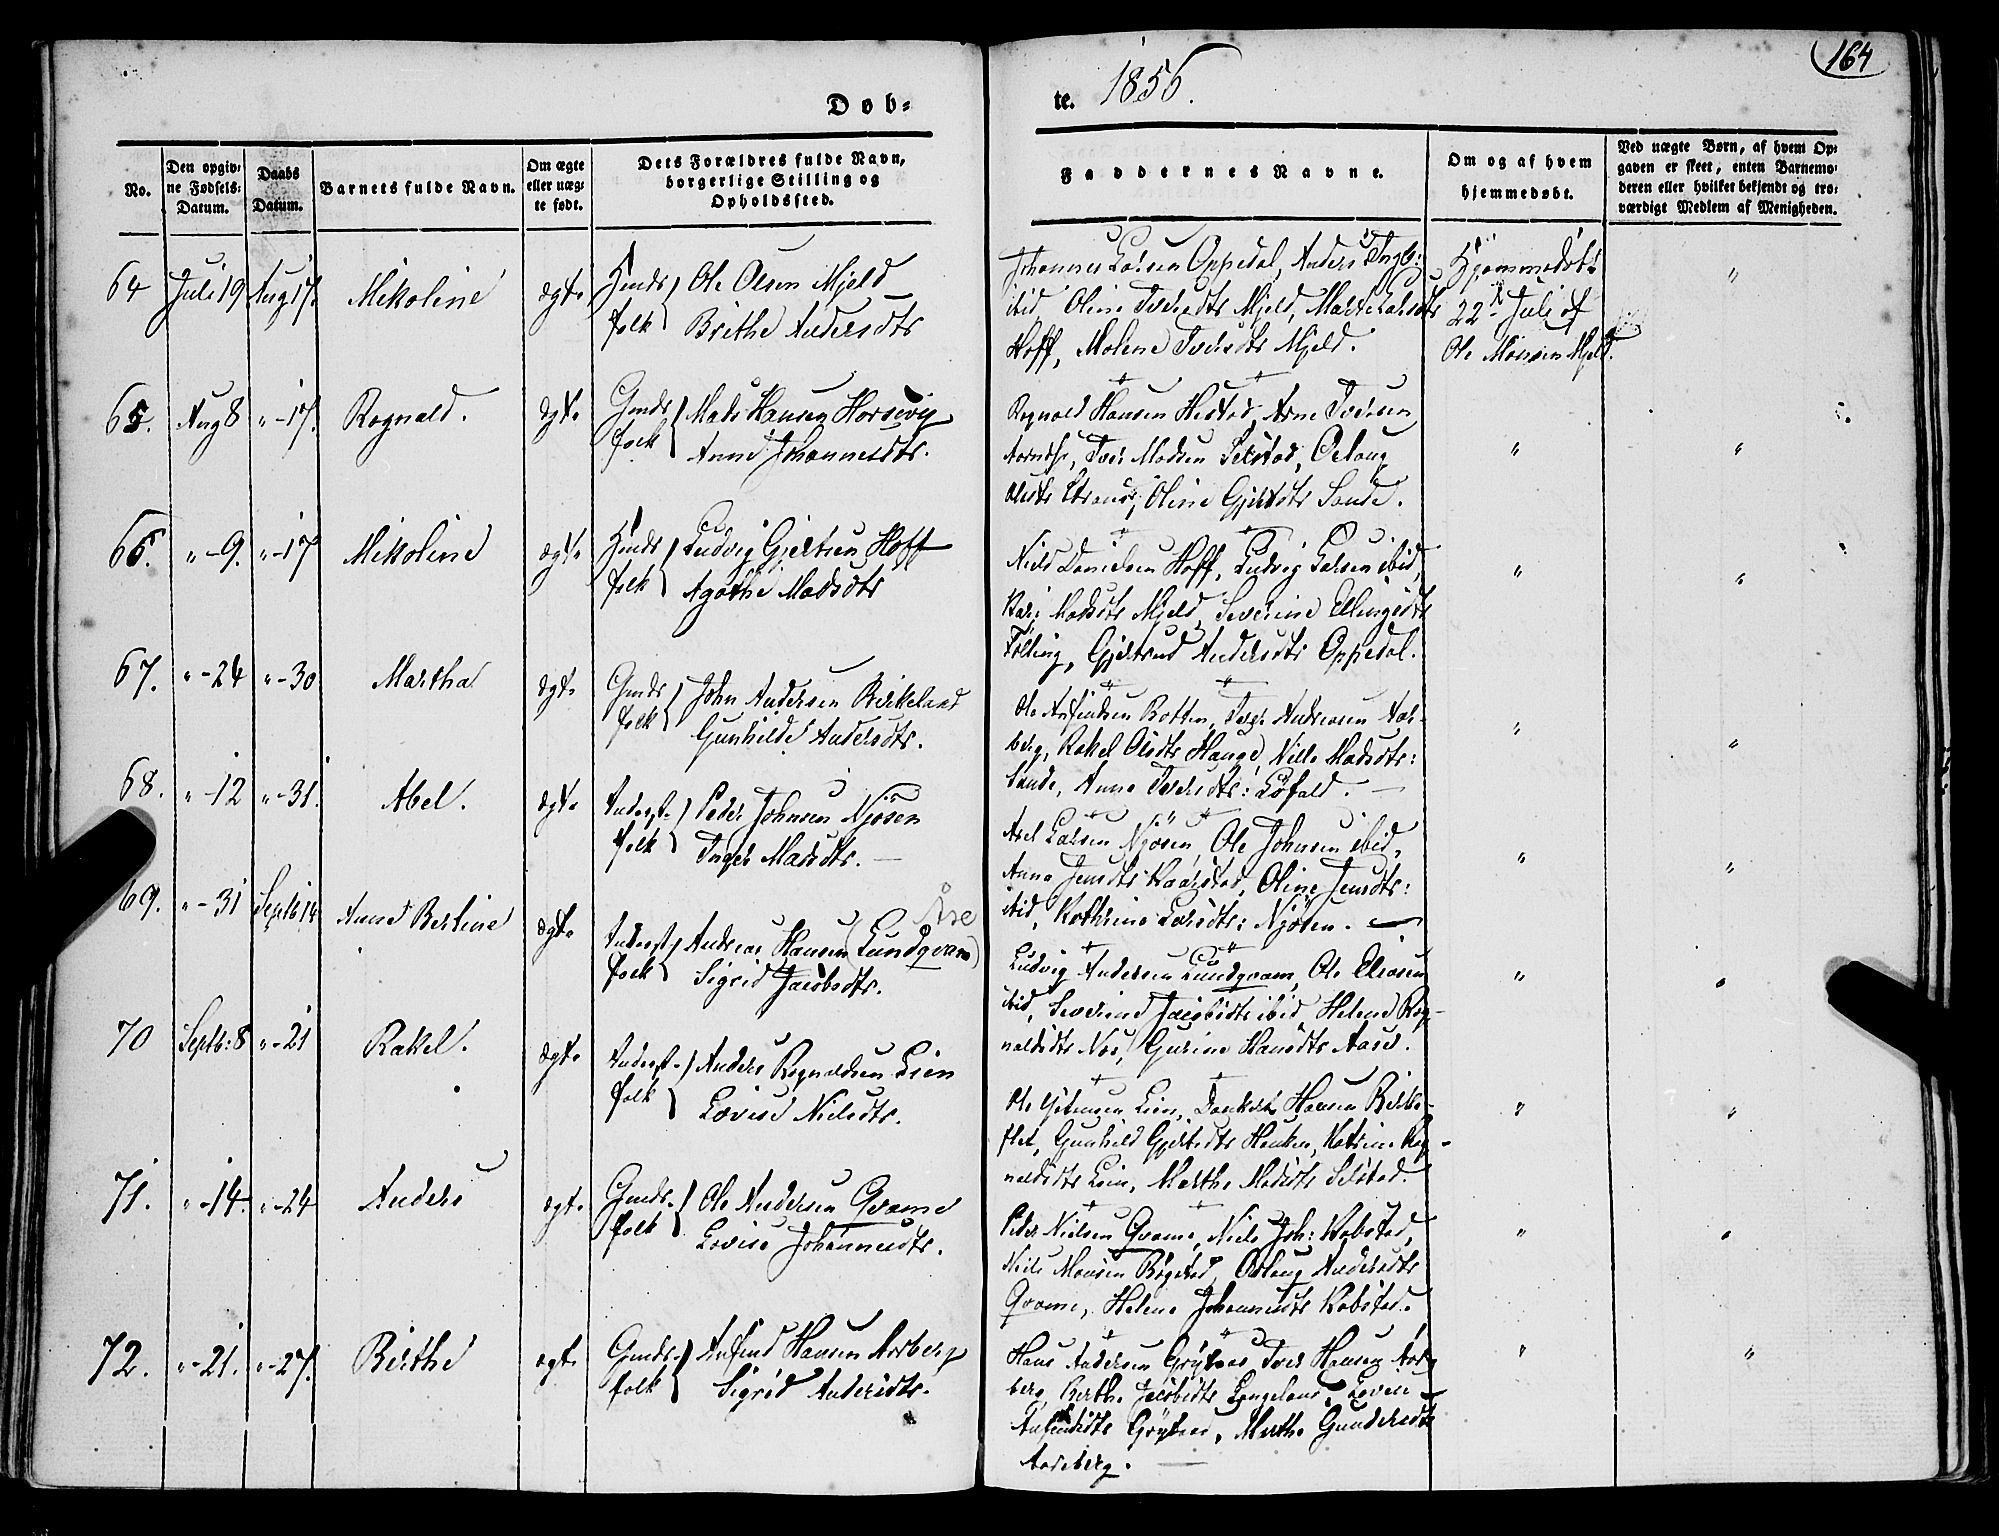 164
Døb=
te. 1856.
No.
Den opgiv=
ne Fødsels=
Datum.
Daabs
Datum.
Barnets fulde Navn.
Om ægte
eller uæg=
te født.
Dets Forældres fulde Navn,
borgerlige Stilling og
Opholdssted.
Faddernes Navne.
Om og af hvem
hjemmedøbt.
Ved uægte Børn, af hvem Op=
gaven er skeet, enten Barnemo=
deren eller hvilket bekjendt og tro=
værdigt Medlem af Menigheden.
64 Juli 19 Aug 17. Mikoline ægte Ole Olsen Mjeld
folk Brithe Andersdtr
Johannes Larsen Oppedal, Anders
ibid, Oline Iversdtr Mjeld,
Hoff, Malene Iversdtr Mjeld.
Hjemmedøbt
22d Juli af
Ole Monsen Mjeld.
65. Aug 8 "-17. Rognald. ægte Gmds Mads Hansen Horsevig
folk Anne Johannesdtr.
Rognald Hansen Hestad, Arne Iversen
Iver Madsen Selstad, Oslaug
Oline Gjertsdtr Sande.
66. "-9. "-17 Mikoline ægte Ludvig Gjertsen Hoff
folk Agathe Madsdtr
Niels Danielsen Hoff, Ludvig Larsen ibid,
Kari Madsdtr Mjeld, Severine Ellingsdtr
Gjertrud Andersdtr Oppedal.
67. "-24 "-30 Martha ægte Gmds John Andersen Birkeland
folk Gunhilde Andersdtr.
Ole Anfindsen Botten, Andreasen Aar=
berg, Rakel Olsdtr Hauge, Nille Madsdtr:
Sande, Anne Iversdtr: Løfald. —
68. "-12 "-31. Abel. ægte Inderst= Peder Johnsen Njøsen
folk Inger Madsdtr. —
Axel Larsen Njøsen, Ole Johnsen ibid,
Anna Jensdtr Kaarstad, Oline Jensdtr:
ibid, Kathrine Larsdtr: Njøsen. —
69. "-31 Septb 14 Anne Bertine ægte Inderst Andreas Hansen (Lundqvam) Åse
folk Sigrid Jacobsdtr.
Ludvig Andersen Lundqvam, Ole Eliasen
ibid, Severine Jacobsdtr ibid, Helene Rog=
naldsdtr Nes, Gurine Hansdtr Aase.
70 Septb: 8 "-21 Rakel. ægte Inderst= Anders Rognaldsen Lien
folk Lovise Nielsdtr.
Lien, Dankert Hansen Birke=
flet, Gunhild Gjertsdtr Henken, Katrine Rog=
naldsdtr Lein, Marthe Madsdtr Selstad.
71. "-14. "-24 Anders ægte Gmds= Ole Andersen Qvame
folk Lovise Johannesdtr.
Peder Nielsen Qvame, Niels Joh: Kobstad,
Niels Monsen Bøgstad, Oslaug Andersdtr
Qvame, Helene Johannesdtr Kobstad.
72. "-21. "-27. Berthe ægte Gmds= Anfind Hansen Aarberg
folk Sigrid Andersdtr.
Hans Andersen Grytnes, Iver Hansen Aar=
berg, Berthe Jacobsdtr Lovise
Anfindsdtr Grytnes, Marthe Gundersdtr
Aarberg. —